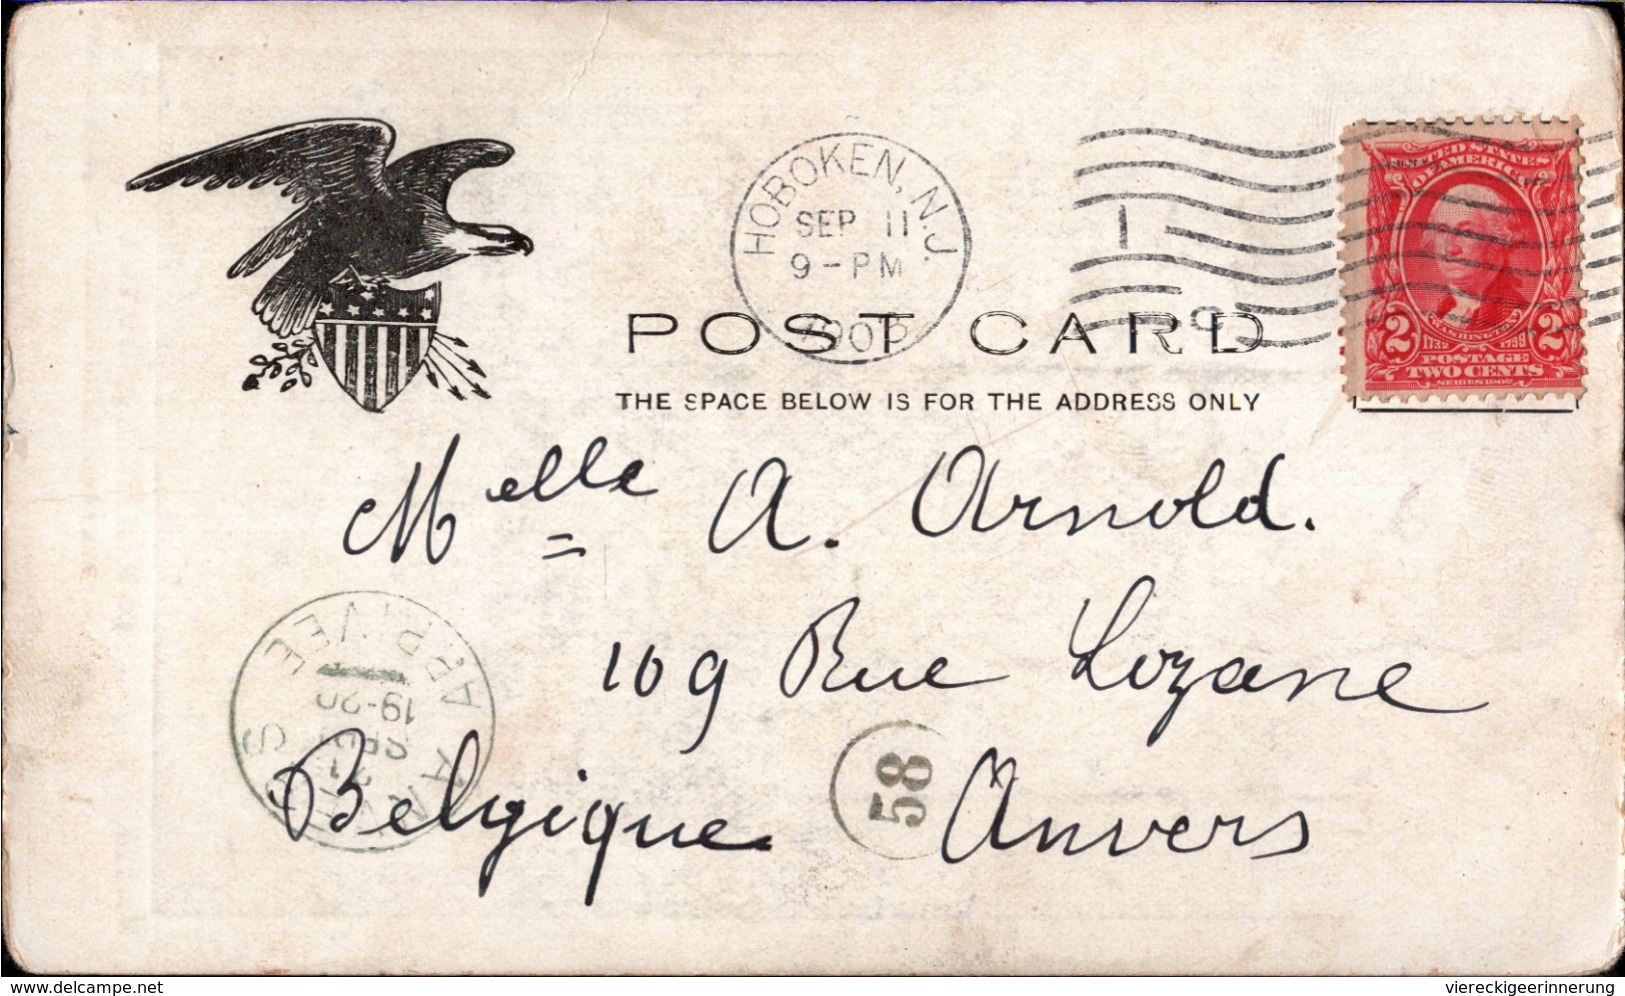 HOBOKEN, N.J.
SEP 11
9-PM
1
UNITED STATES
OF AMERICA
WASHINGTON
1732 1799
2 2
POSTAGE
TWO CENTS
SERIES 1902
POST CARD
THE SPACE BELOW IS FOR THE ADDRESS ONLY
Melle A. Arnold.
109 Rue Lozane
Belgique Anvers
ARRIVEE
19-20
58
delcampe.net
viereckigeerinnerung